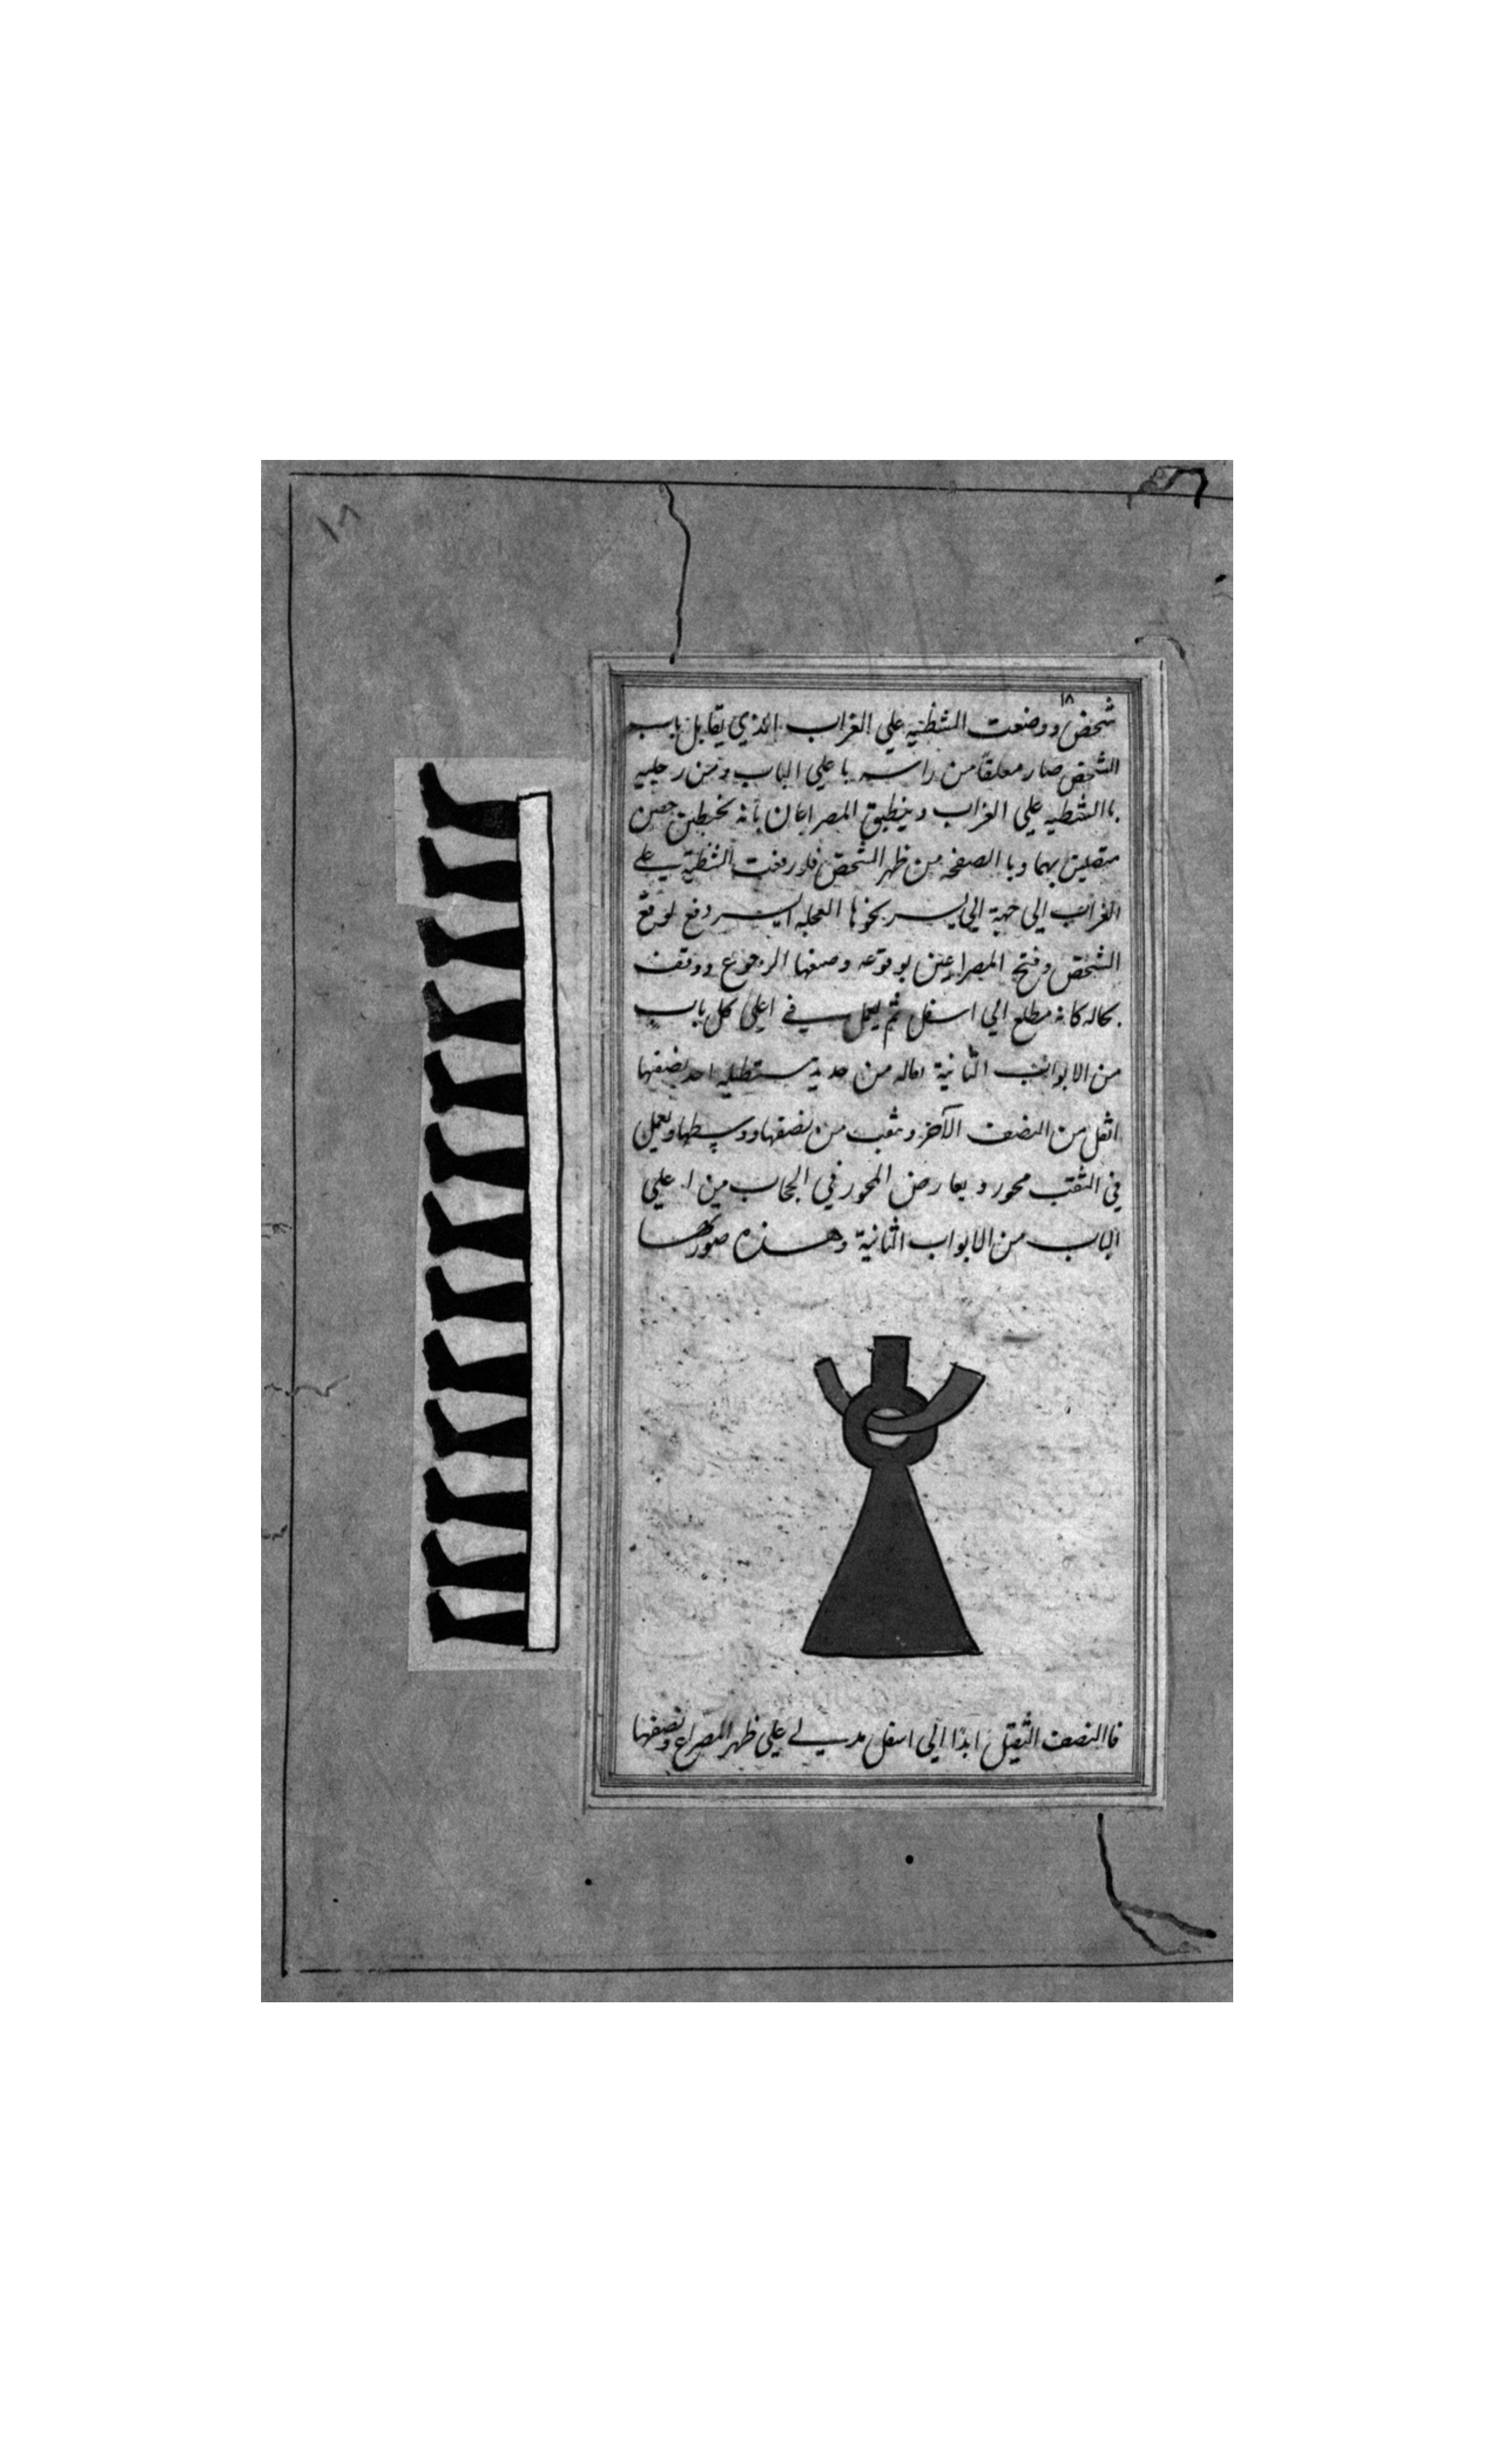 ١٨
شخص ووضعت الشظيه علي الغراب الذي يقابل باب
الشخص صار معلقا من راسه با علي الباب ومن رجليه
باالشظيه علي الغراب وينطبق المصراعان بانه
متصلين بهما وبا الصفحه من ظهر الشخص فلو رفعت الشظية علي
الغراب الي جهة الي العجله وقع
الشخص وفتح المصراعين بوقوعه ومنعها الرجوع ووقف
بحاله كانه مطلع الي اسفل ثم ليعمل في اعلي كل باب
من الابواب الثانية من حديد مستطيله احد نصفها
اثقل من النصف الآخر وثقب من نصفها ووسطها ويعمل
في الثقب محور ويعارض المحور في الحجاب من اعلي
الباب من الابواب الثانية وهذه صورتها
فاالنصف الثقيل ابدا الي اسفل علي ظهر المصراع ونصفها